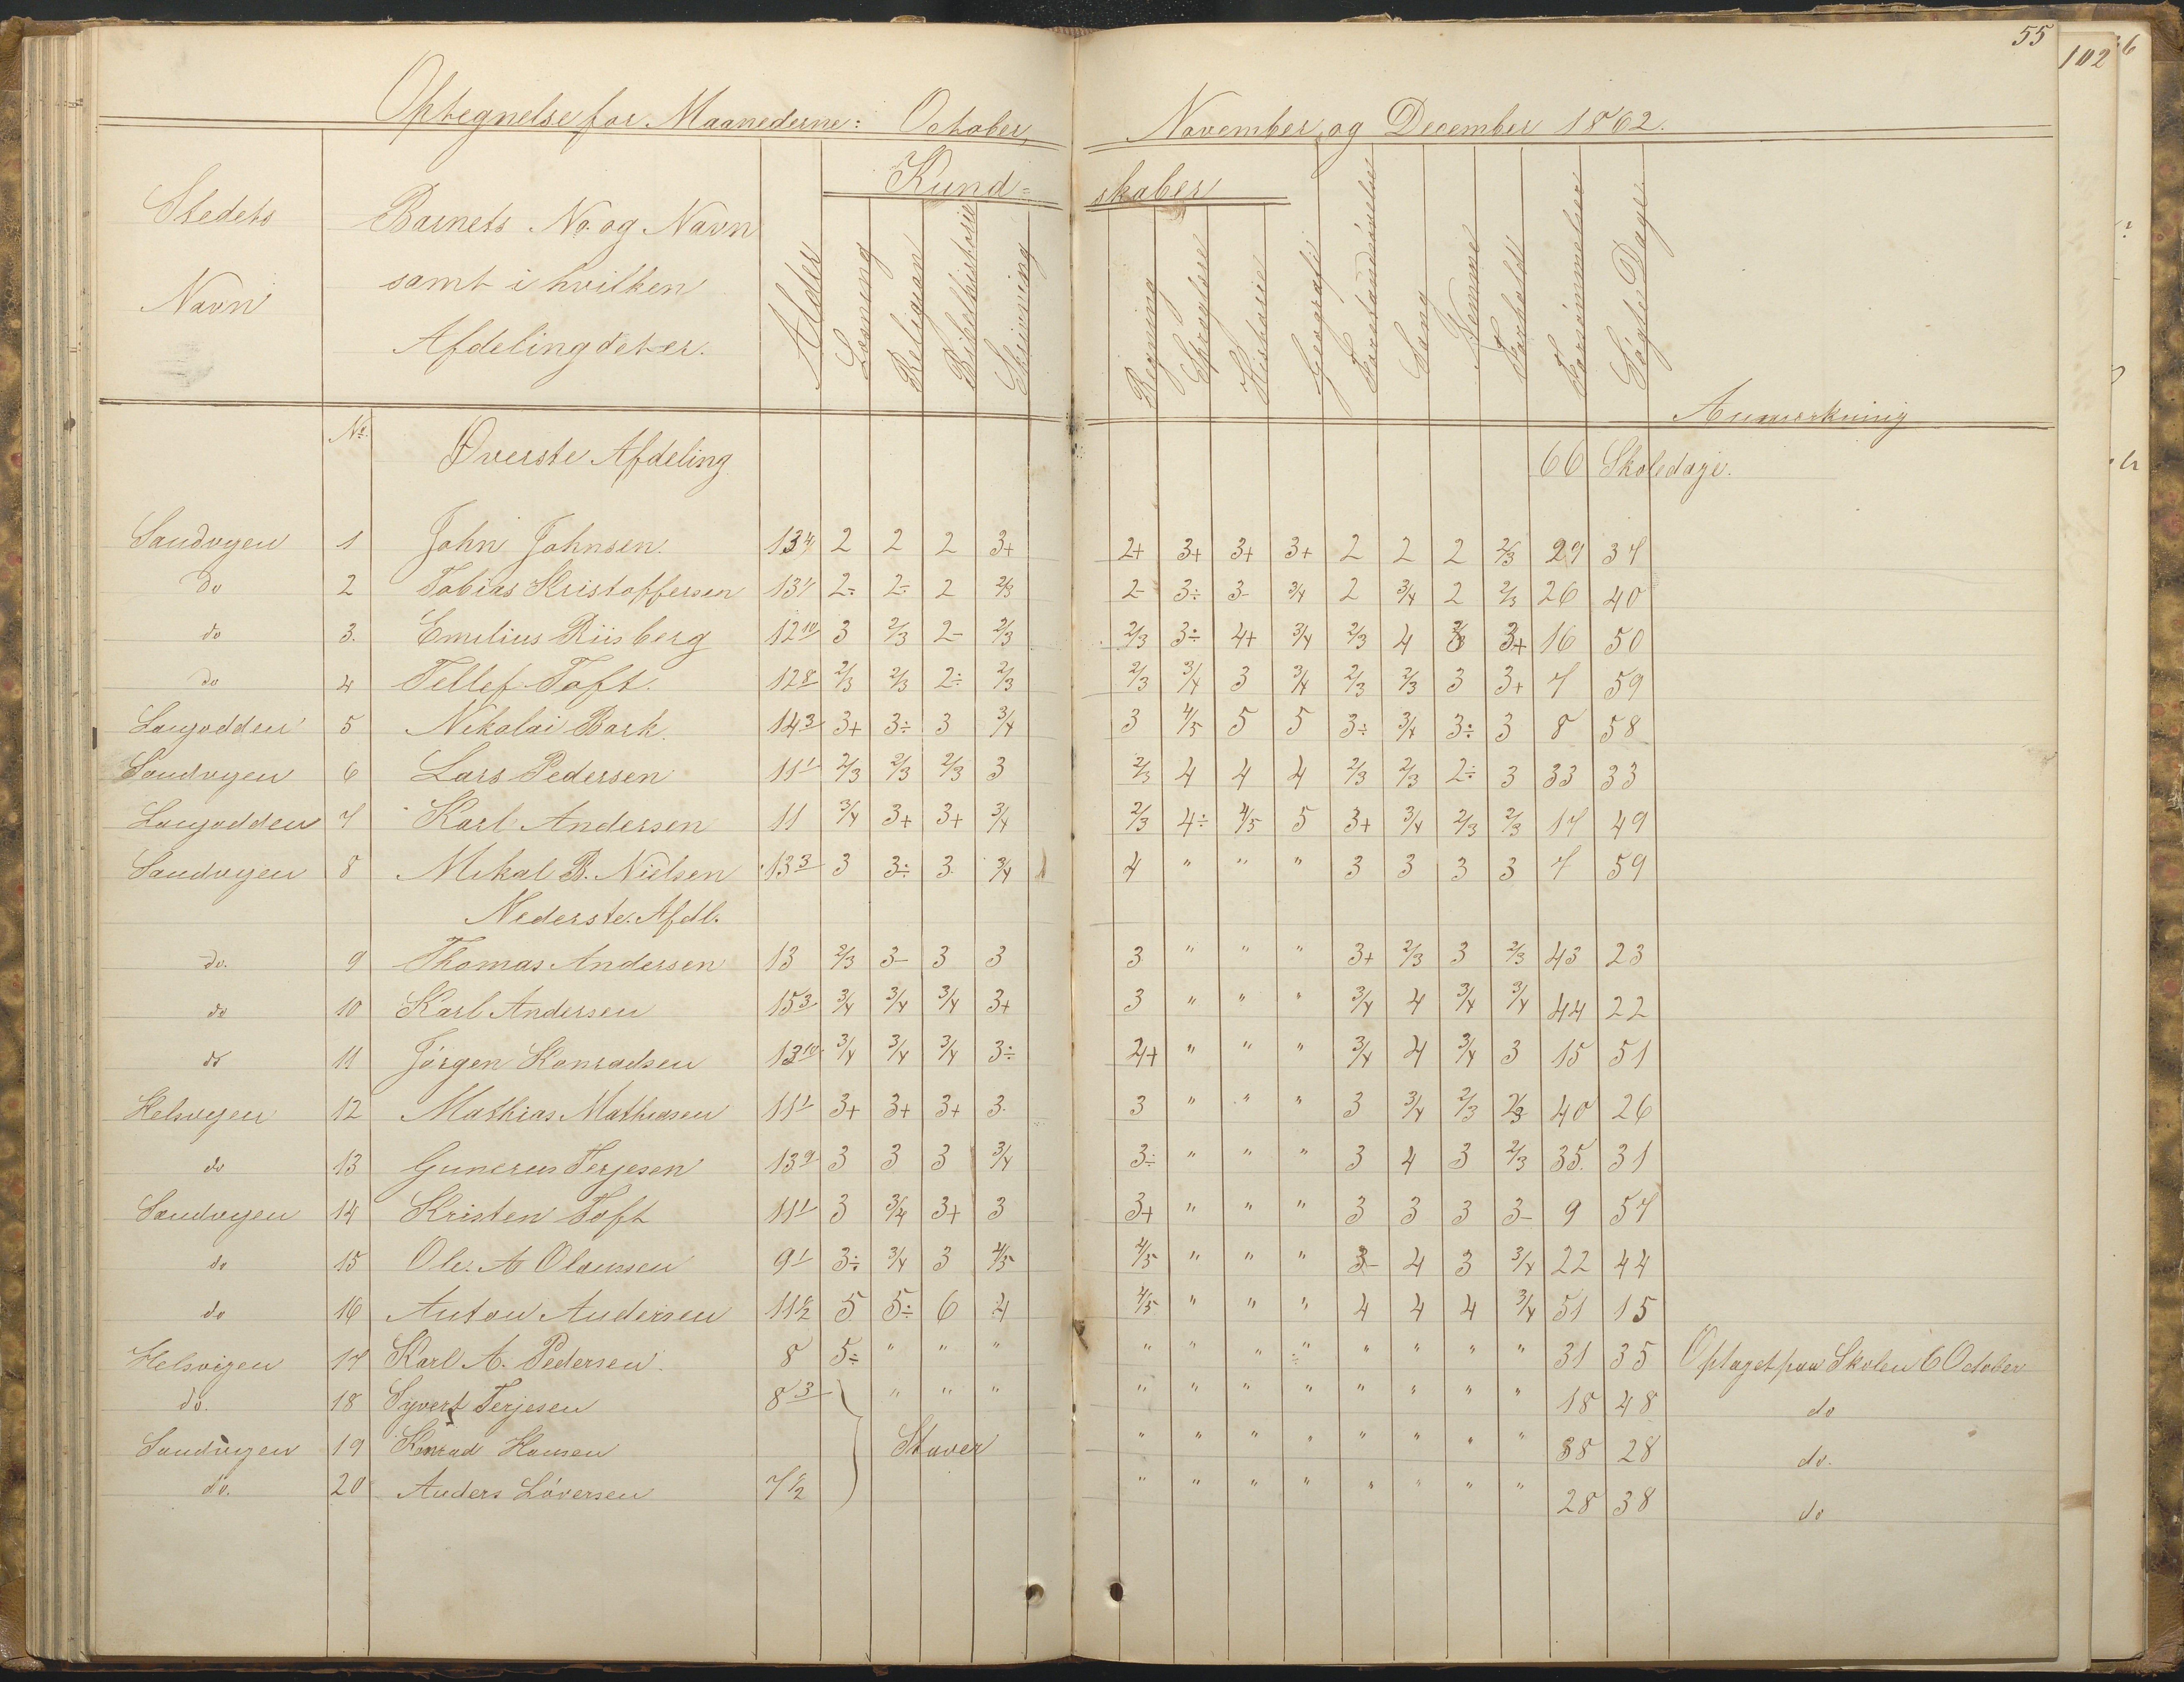 55
102
6
Optegnelse for Maanederne: October, November og December 1862.
Stedets Navn
Barnets No. og Navn samt i hvilken Afdeling det er.
Alder
Kundskaber
Læsning Religion Bibelhistorie Skrivning Regning Historie Geografi Sang Nemme Forhold Forsømmelser Søgte Dage
Anmærkning
No. Øverste Afdeling 66 Skoledage.
Sandvigen 1 John Johnsen. 13 4/ 2 2 2 3+ 2+ 3+ 3+ 3+ 2 2 2 2/3 29 37
do 2 Tobias Kristoffersen 13 1/ 2÷ 2÷ 2 2/3 2- 3÷ 3- 3/4 2 3/4 2 2/3 26 40
do 3. Emilius Riisberg 12 10 3 2/3 2- 2/3 2/3 3÷ 4+ 3/4 2/3 4 3 3+ 16 50
do 4 Tellef Toft. 12 8 2/3 2/3 2÷ 2/3 2/3 3/4 3 3/4 2/3 2/3 3 3+ 7 59
Langodden 5 Nikolai Bark. 14 3 3+ 3÷ 3 3/4 3 4/5 5 5 3÷ 3/4 3÷ 3 8 58
Sandvigen 6 Lars Pedersen 11 1 2/3 2/3 2/3 3 2/3 4 4 4 2/3 2/3 2÷ 3 33 33
Langodden 7 Karl Andersen 11 3/4 3+ 3+ 3/4 2/3 4÷ 4/5 5 3+ 3/4 2/3 2/3 17 49
Sandvigen 8 Mikal B. Nielsen 13 3 3 3÷ 3. 3/4 4 " " " 3 3 3 3 7 59
Nederste Afdl.
do. 9 Thomas Andersen 13 2/3 3- 3 3 3 " " " 3+ 2/3 3 2/3 43 23
do 10 Karl Andersen 15 3 3/4 3/4 3/4 3+ 3 " " " 3/4 4 3/4 3/4 44 22
do 11 Jörgen Konradsen 13 10 3/4 3/4 3/4 3÷ 4+ " " " 3/4 4 3/4 3 15 51
Helsvigen 12 Mathias Mathiasen 11 1 3+ 3+ 3+ 3. 3 " " " 3 3/4 2/3 2/3 40 26
do 13 Gunerus Terjesen 13 9 3 3 3 3/4 3÷ " " " 3 4 3 2/3 35. 31
Sandvigen 14 Kristen Toft 11 1 3 3/4 3+ 3 3+ " " " 3 3 3 3- 9 57
do 15 Ole. A Olaussen 9 1 3÷ 3/4 3 4/5 4/5 " " " 3- 4 3 3/4 22 44
do 16 Anton Andersen 11 1/2 5 5÷ 6 4 4/5 " " " 4 4 4 3/4 51 15
Helsvigen 17 Karl A. Pedersen. 8 5÷ " " " " " " " " " " " 31 35 Optaget paa Skolen 6 October
do. 18 Syvert Terjesen 8 3 " " " " " " " " " " " 18 48 do
Sandvigen 19 Konrad Hansen Staver " " " " " " " " 38 28 do.
do. 20 Anders Löversen 7 1/2 " " " " " " " " 28 38 do